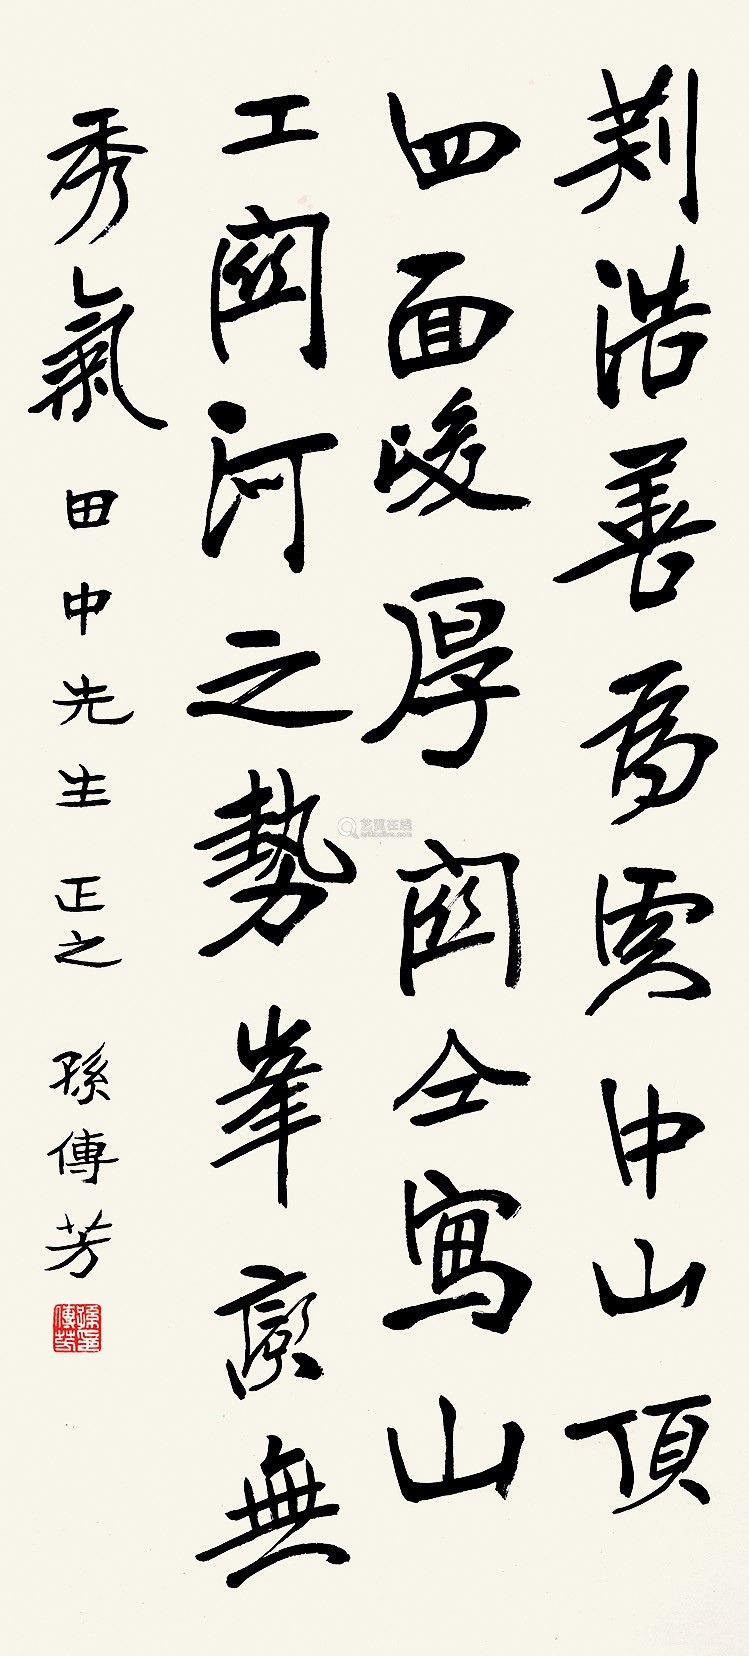 荆浩善為雲中山頂
四面峻厚關仝寫山
工關河之勢峯巒無
秀氣 田中先生 正之 孫傳芳
艺狐在线
artfoxlive.com